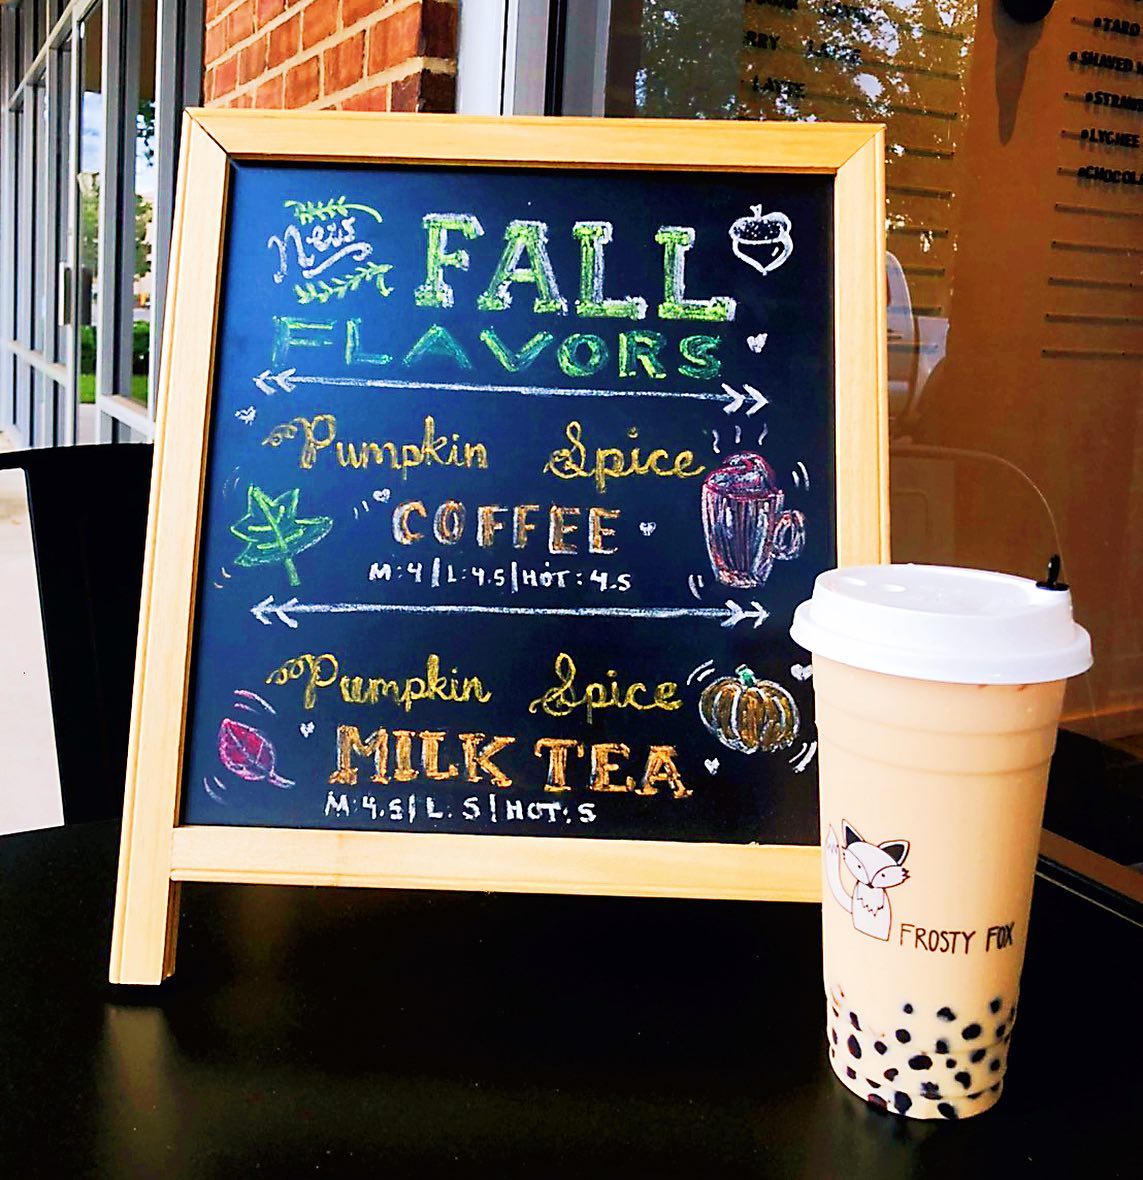 New FALL
FLAVORS
Pumpkin Spice
COFFEE
M:4 | L:4.5 | HOT:4.5
Pumpkin Spice
MILK TEA
M:4.5 | L:5 | HOT:5
FROSTY FOX
LATTE
LATTE
TARO
LYCHEE